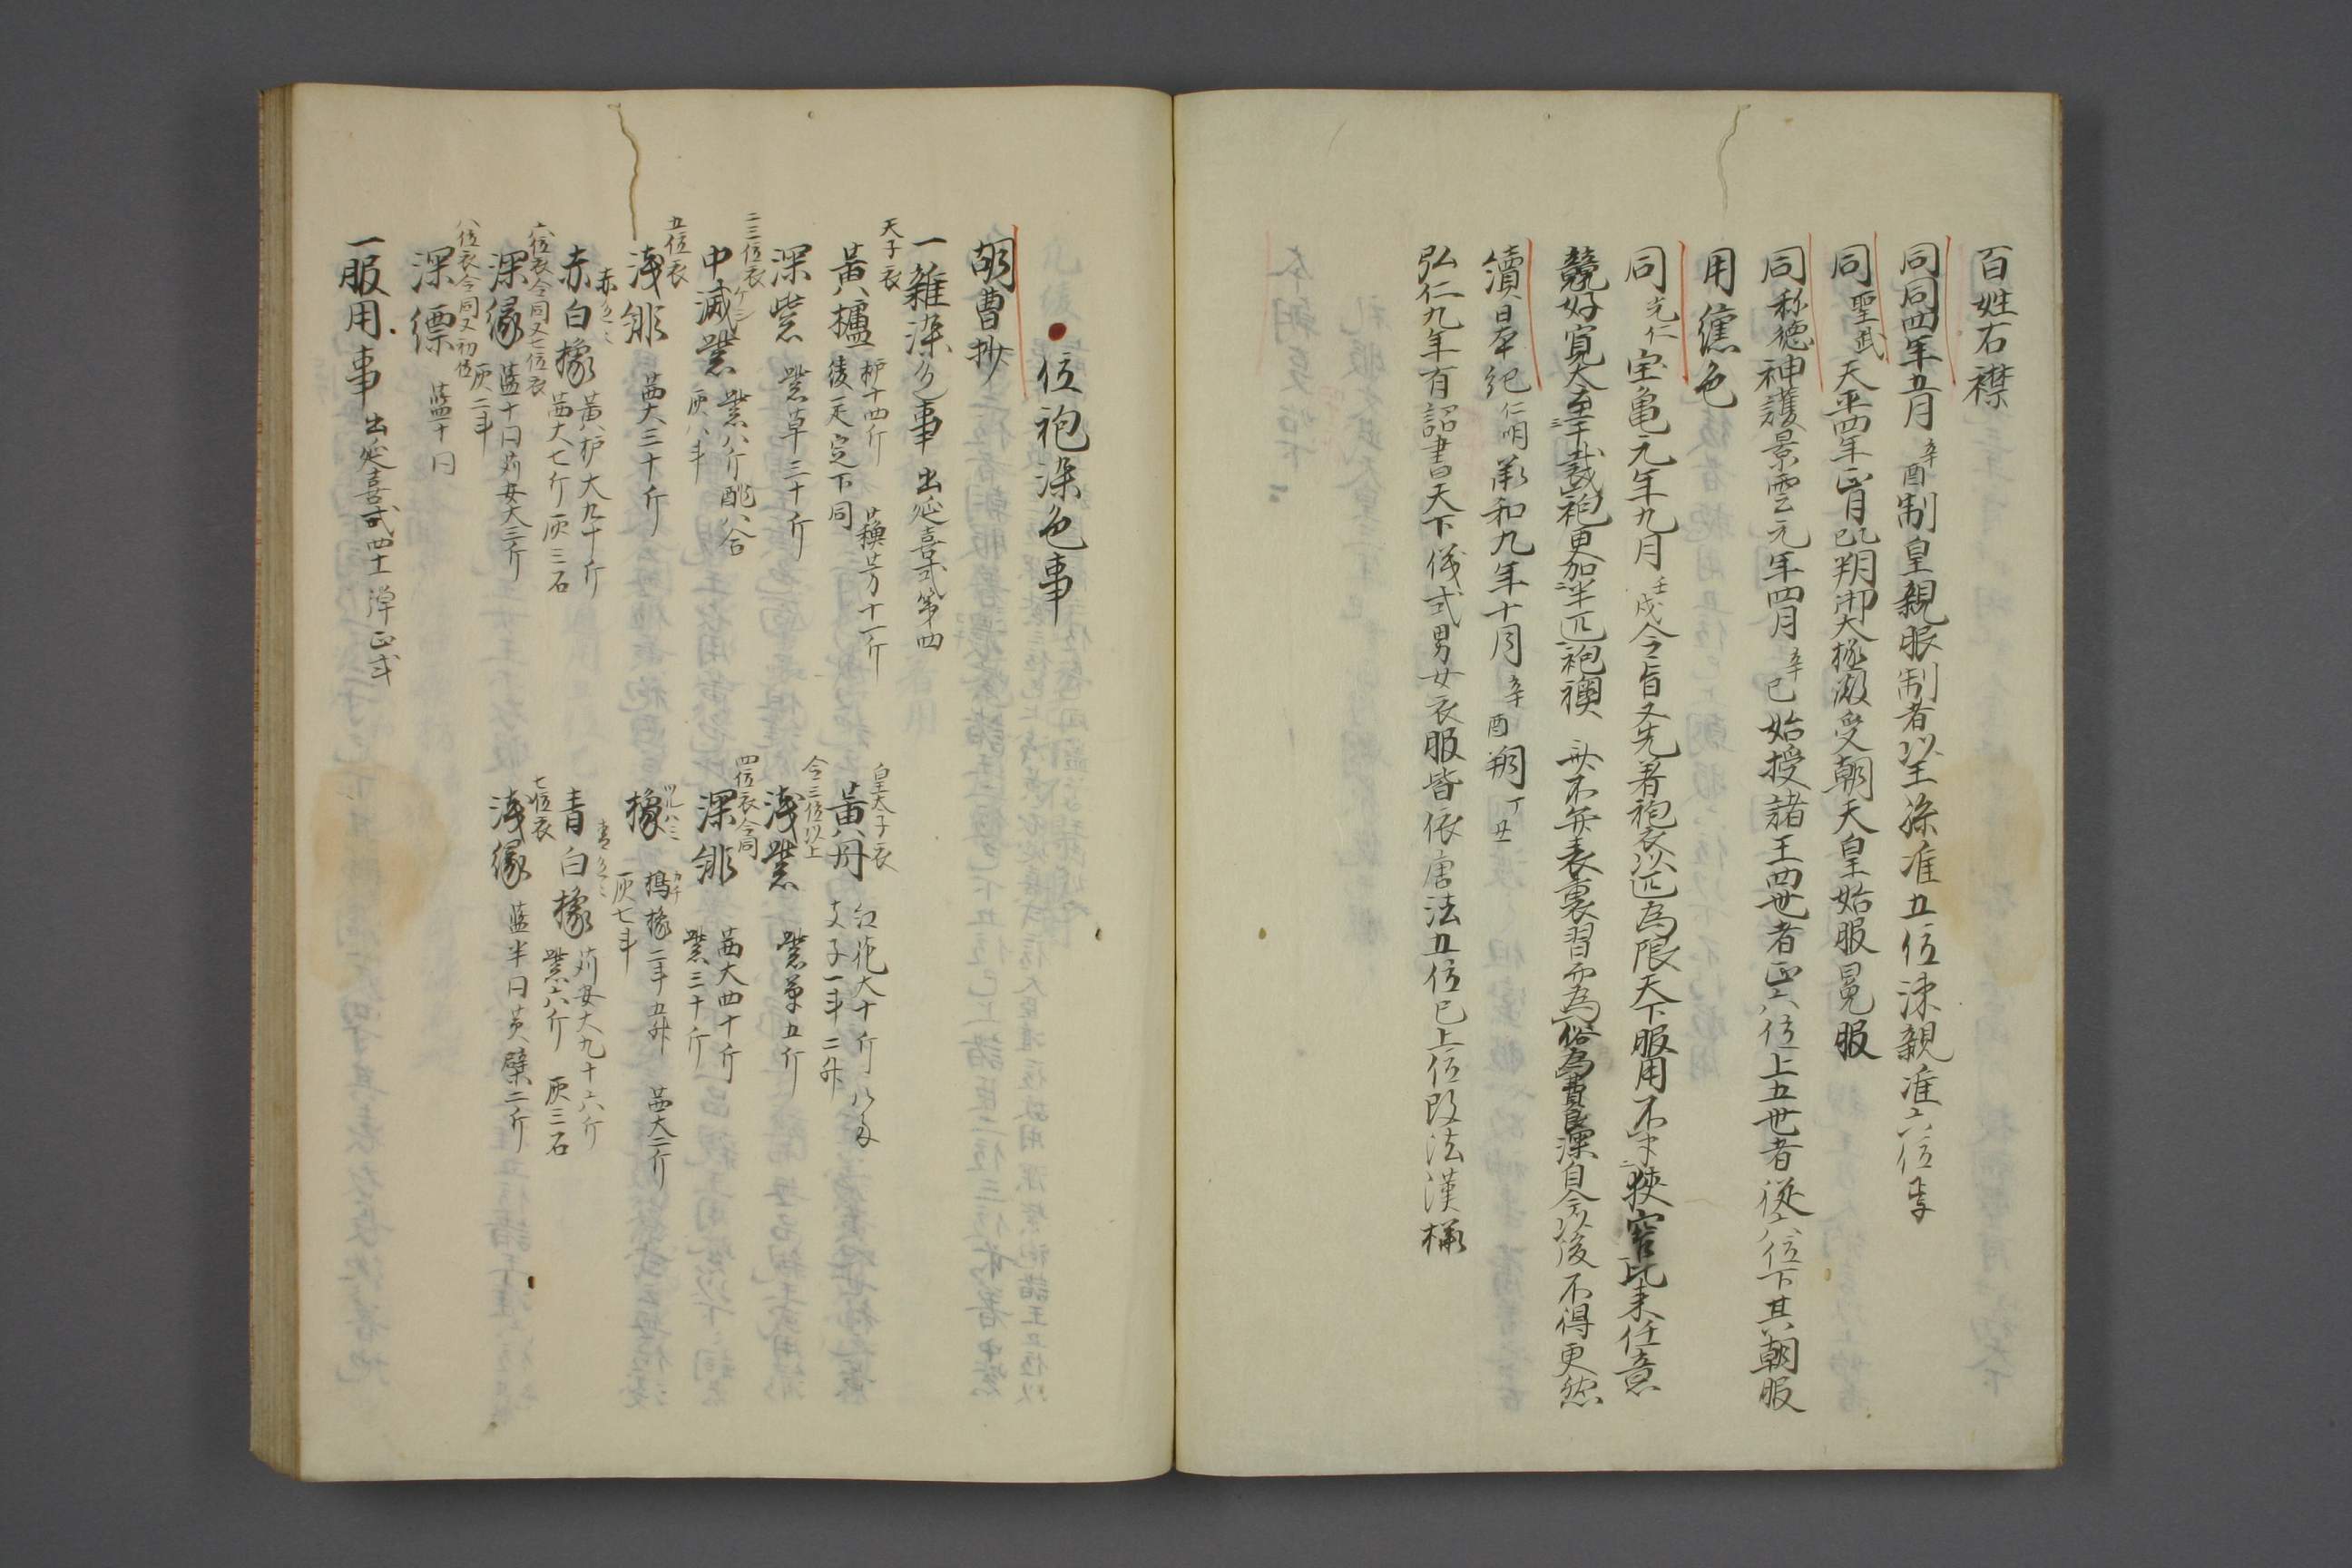 百姓右襟
同同四年五月辛酉制皇親服制者以王孫准五位疎親准六位焉
同聖武天平四年正月乙巳朔御大極殿受朝天皇始服冕服
同称徳神護景雲元年四月辛巳始授諸王四世者正六位上五世者従六位下其朝服
用纁色
同光仁宝亀元年九月壬戌令旨又先着袍衣以匹為限天下服用不中狭窄比来任意
競好寛大至于裁袍更加半匹袍襖無不弁表裏習而為俗為費良深自今以後不得更然
續日本紀仁明承和九年十月辛酉朔丁丑
弘仁九年有詔書天下儀式男女衣服皆依唐法五位已上位改法漢様
位袍染色事
胡曹抄
一雑染色事 出延喜式第四
天子衣
黄櫨 櫨十四斤 蘇芳十一斤
綾一疋定下同
皇太子衣
黄丹 紅花大十斤八多
支子一斗二升
深紫 紫草三十斤
令三位以上
浅紫 紫草五斤
二三位衣
中滅紫 紫八斤酢八合
灰八斗
四位衣令同
深緋 茜大四十斤
紫三十斤
五位衣
浅緋 茜大三十斤
ツルハミ
橡 搗橡二斗五升 茜大二斤
灰七斗
赤色ミ
赤白橡 黄櫨大九十斤
茜大七斤灰三石
青色ミ
青白橡 苅安大九十六斤
紫六斤 灰三石
六位衣令同又七位衣
深緑 藍十囗苅安大三斤
灰二斗
七位衣
浅緑 藍半囗黄蘗二斤
八位衣令同又初位
深縹 藍十囗
一服用事 出延喜式四十一 弾正式